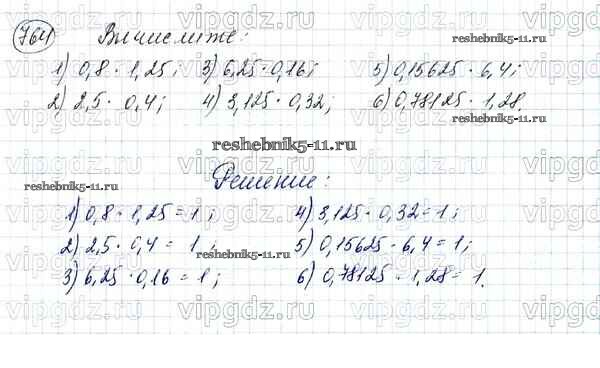 764 Вычислите:
1) 0,8 · 1,25; 3) 6,25 · 0,16; 5) 0,15625 · 6,4;
2) 2,5 · 0,4; 4) 3,125 · 0,32; 6) 0,78125 · 1,28.
Решение:
1) 0,8 · 1,25 = 1; 4) 3,125 · 0,32 = 1;
2) 2,5 · 0,4 = 1; 5) 0,15625 · 6,4 = 1;
3) 6,25 · 0,16 = 1; 6) 0,78125 · 1,28 = 1.
reshebnik5-11.ru
reshebnik5-11.ru
reshebnik5-11.ru
reshebnik5-11.ru
reshebnik5-11.ru
reshebnik5-11.ru
vipgdz.ru